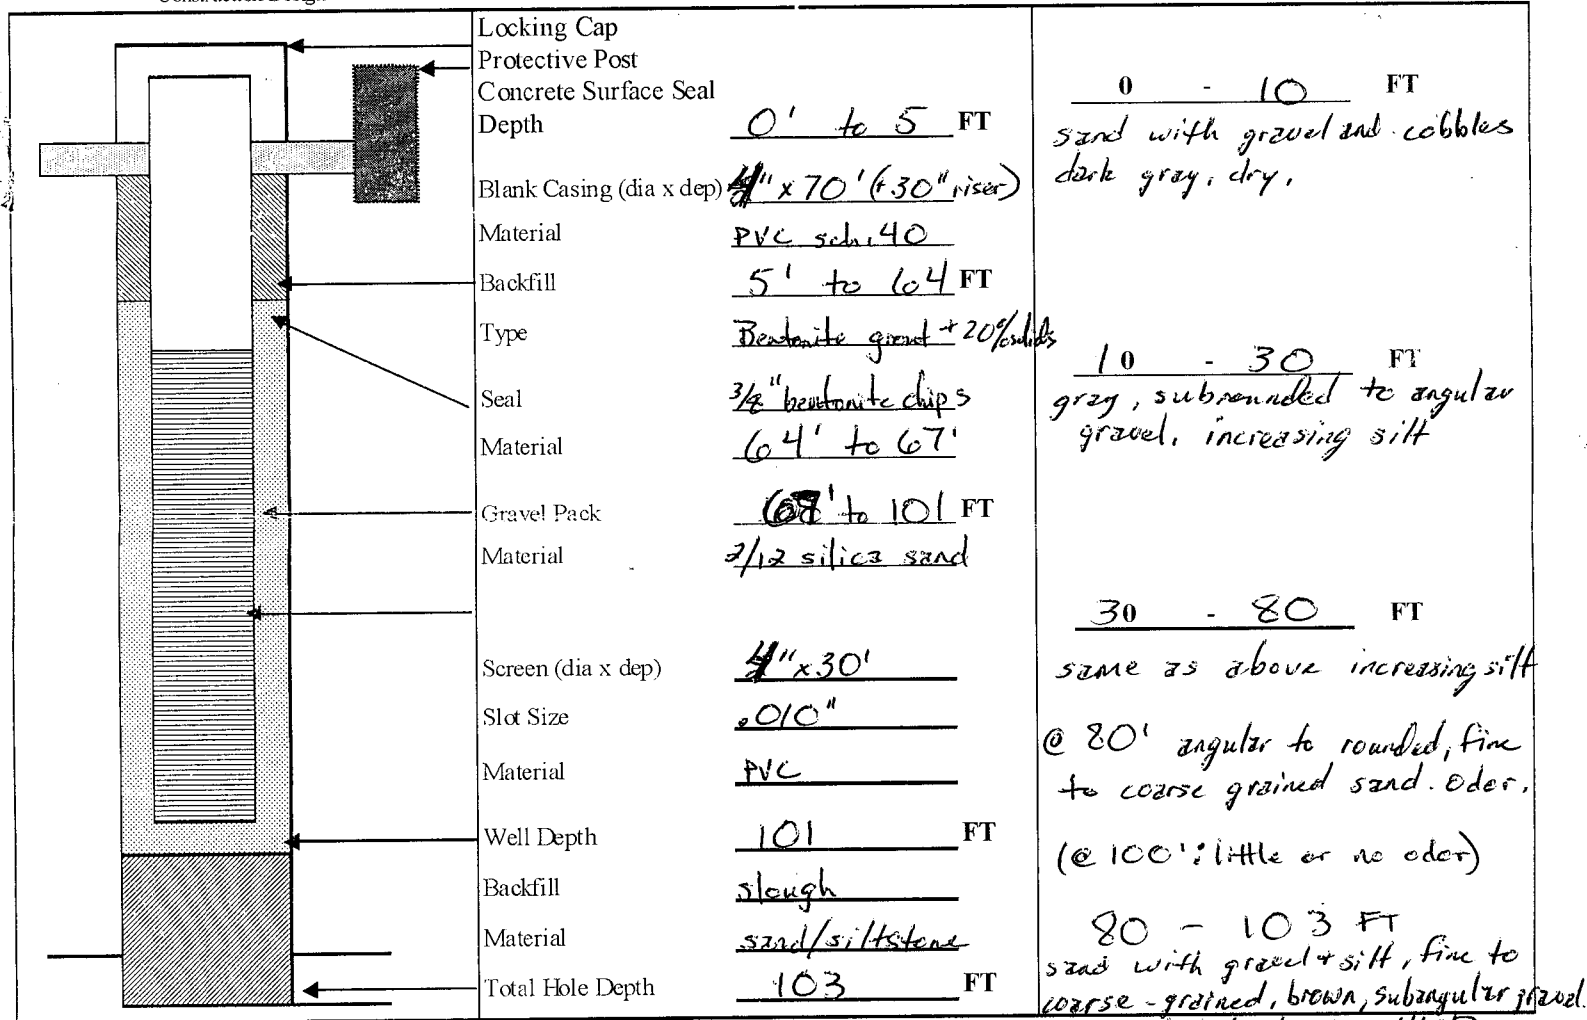 Locking Cap
Protective Post
Concrete Surface Seal
Depth 0' to 5 FT
Blank Casing (dia x dep) 4" x 70' (+30" riser)
Material PVC sch. 40
Backfill 5' to 64 FT
Type Bentonite grout + 20% solids
Seal 3/8" bentonite chips
Material 64' to 67'
Gravel Pack 67' to 101 FT
Material 2/12 silica sand
Screen (dia x dep) 4" x 30'
Slot Size .010"
Material PVC
Well Depth 101 FT
Backfill slough
Material sand/siltstone
Total Hole Depth 103 FT
0 - 10 FT
sand with gravel and cobbles
dark gray, dry.
10 - 30 FT
gray, subrounded to angular
gravel, increasing silt
30 - 80 FT
same as above increasing silt
@ 80' angular to rounded, fine
to coarse grained sand. Odor.
(@ 100': little or no odor)
80 - 103 FT
sand with gravel + silt, fine to
coarse-grained, brown, subangular gravel.